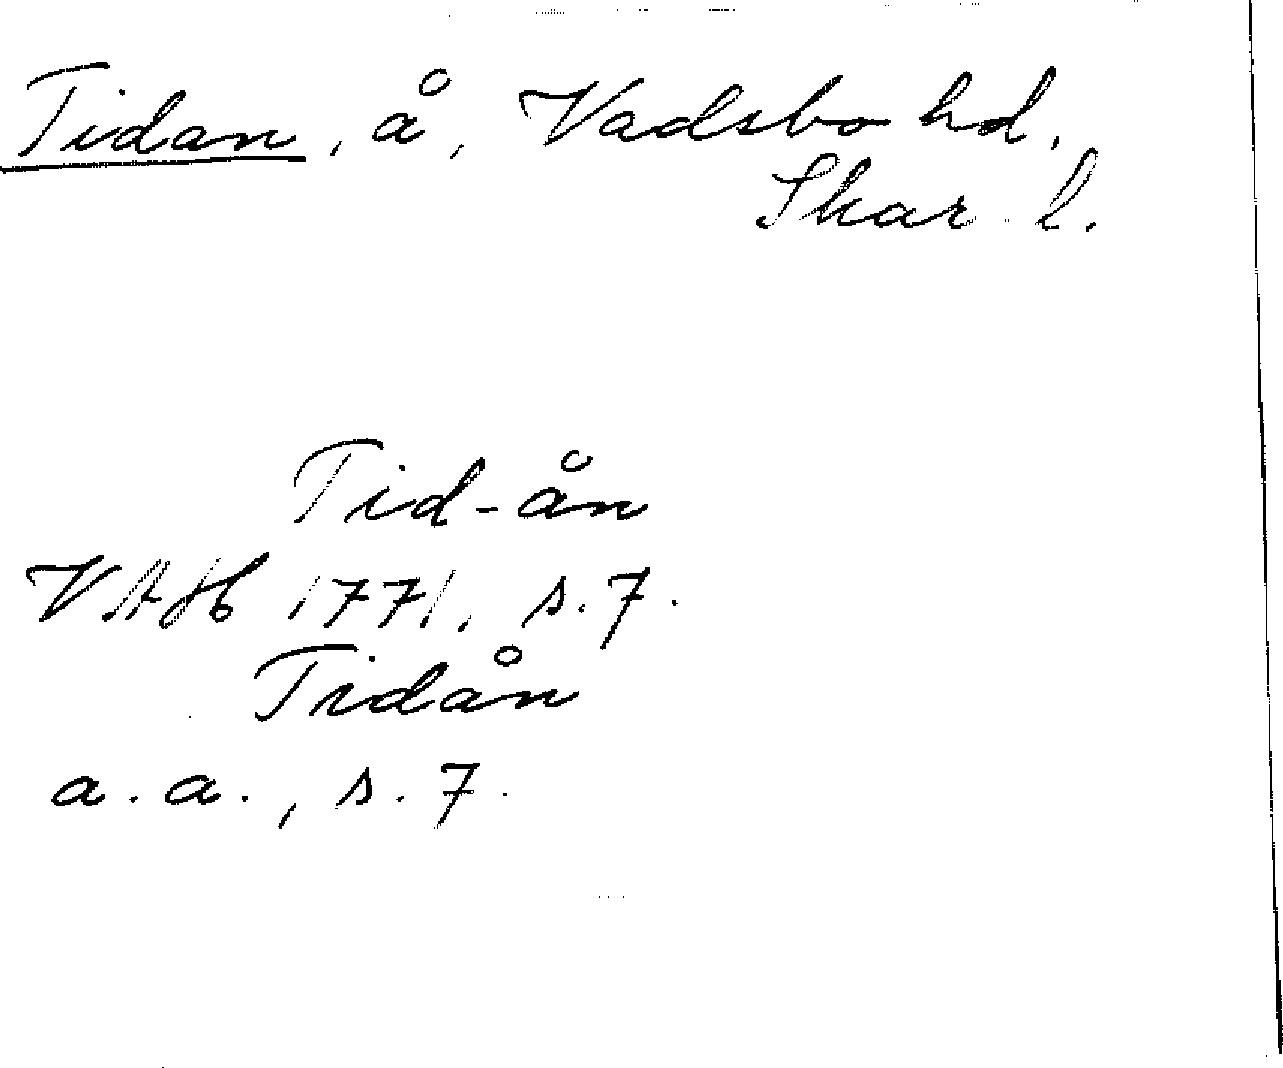 Tidan, å, Vadsbo hd.
Skar. l.
Tid-ån
VAH 1771, s. 7.
Tidån
a. a., s. 7.